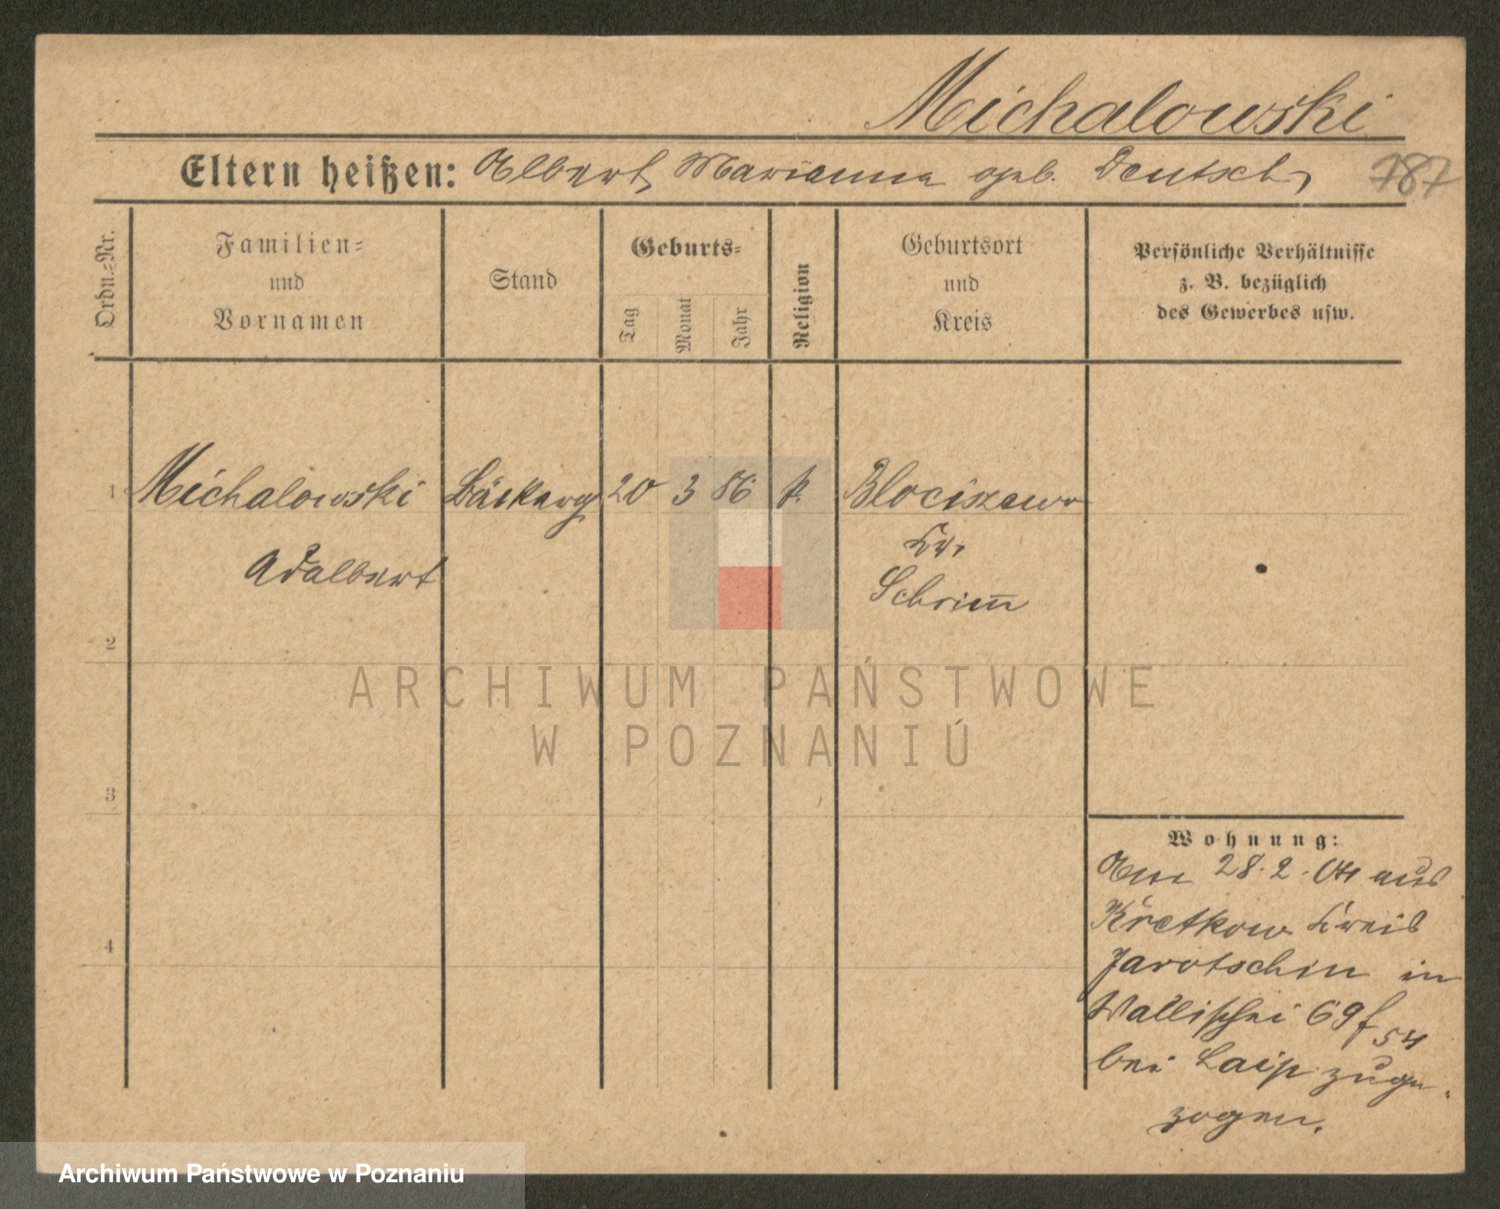 Michalowski
Eltern heißen: Albert, Marianna geb. Deutsch,
787
Ordn.=Nr.
Familien=
und
Vornamen
Stand
Geburts=
Tag
Monat
Jahr
Religion
Geburtsort
und
Kreis
Persönliche Verhältnisse
z. B. bezüglich
des Gewerbes usw.
1 Michalowski Bäckerg 20 3 86 k. Blociszewo
Adalbert
Kr.
Schrim̅
2
ARCHIWUM PAŃSTWOWE
W POZNANIÚ
3
4
Wohnung:
Am 28.2. 04 aus
Kretkow Kreis
Jarotschin in
Wallischei 69
54
bei zuge-
zogen.
Archiwum Państwowe w Poznaniu